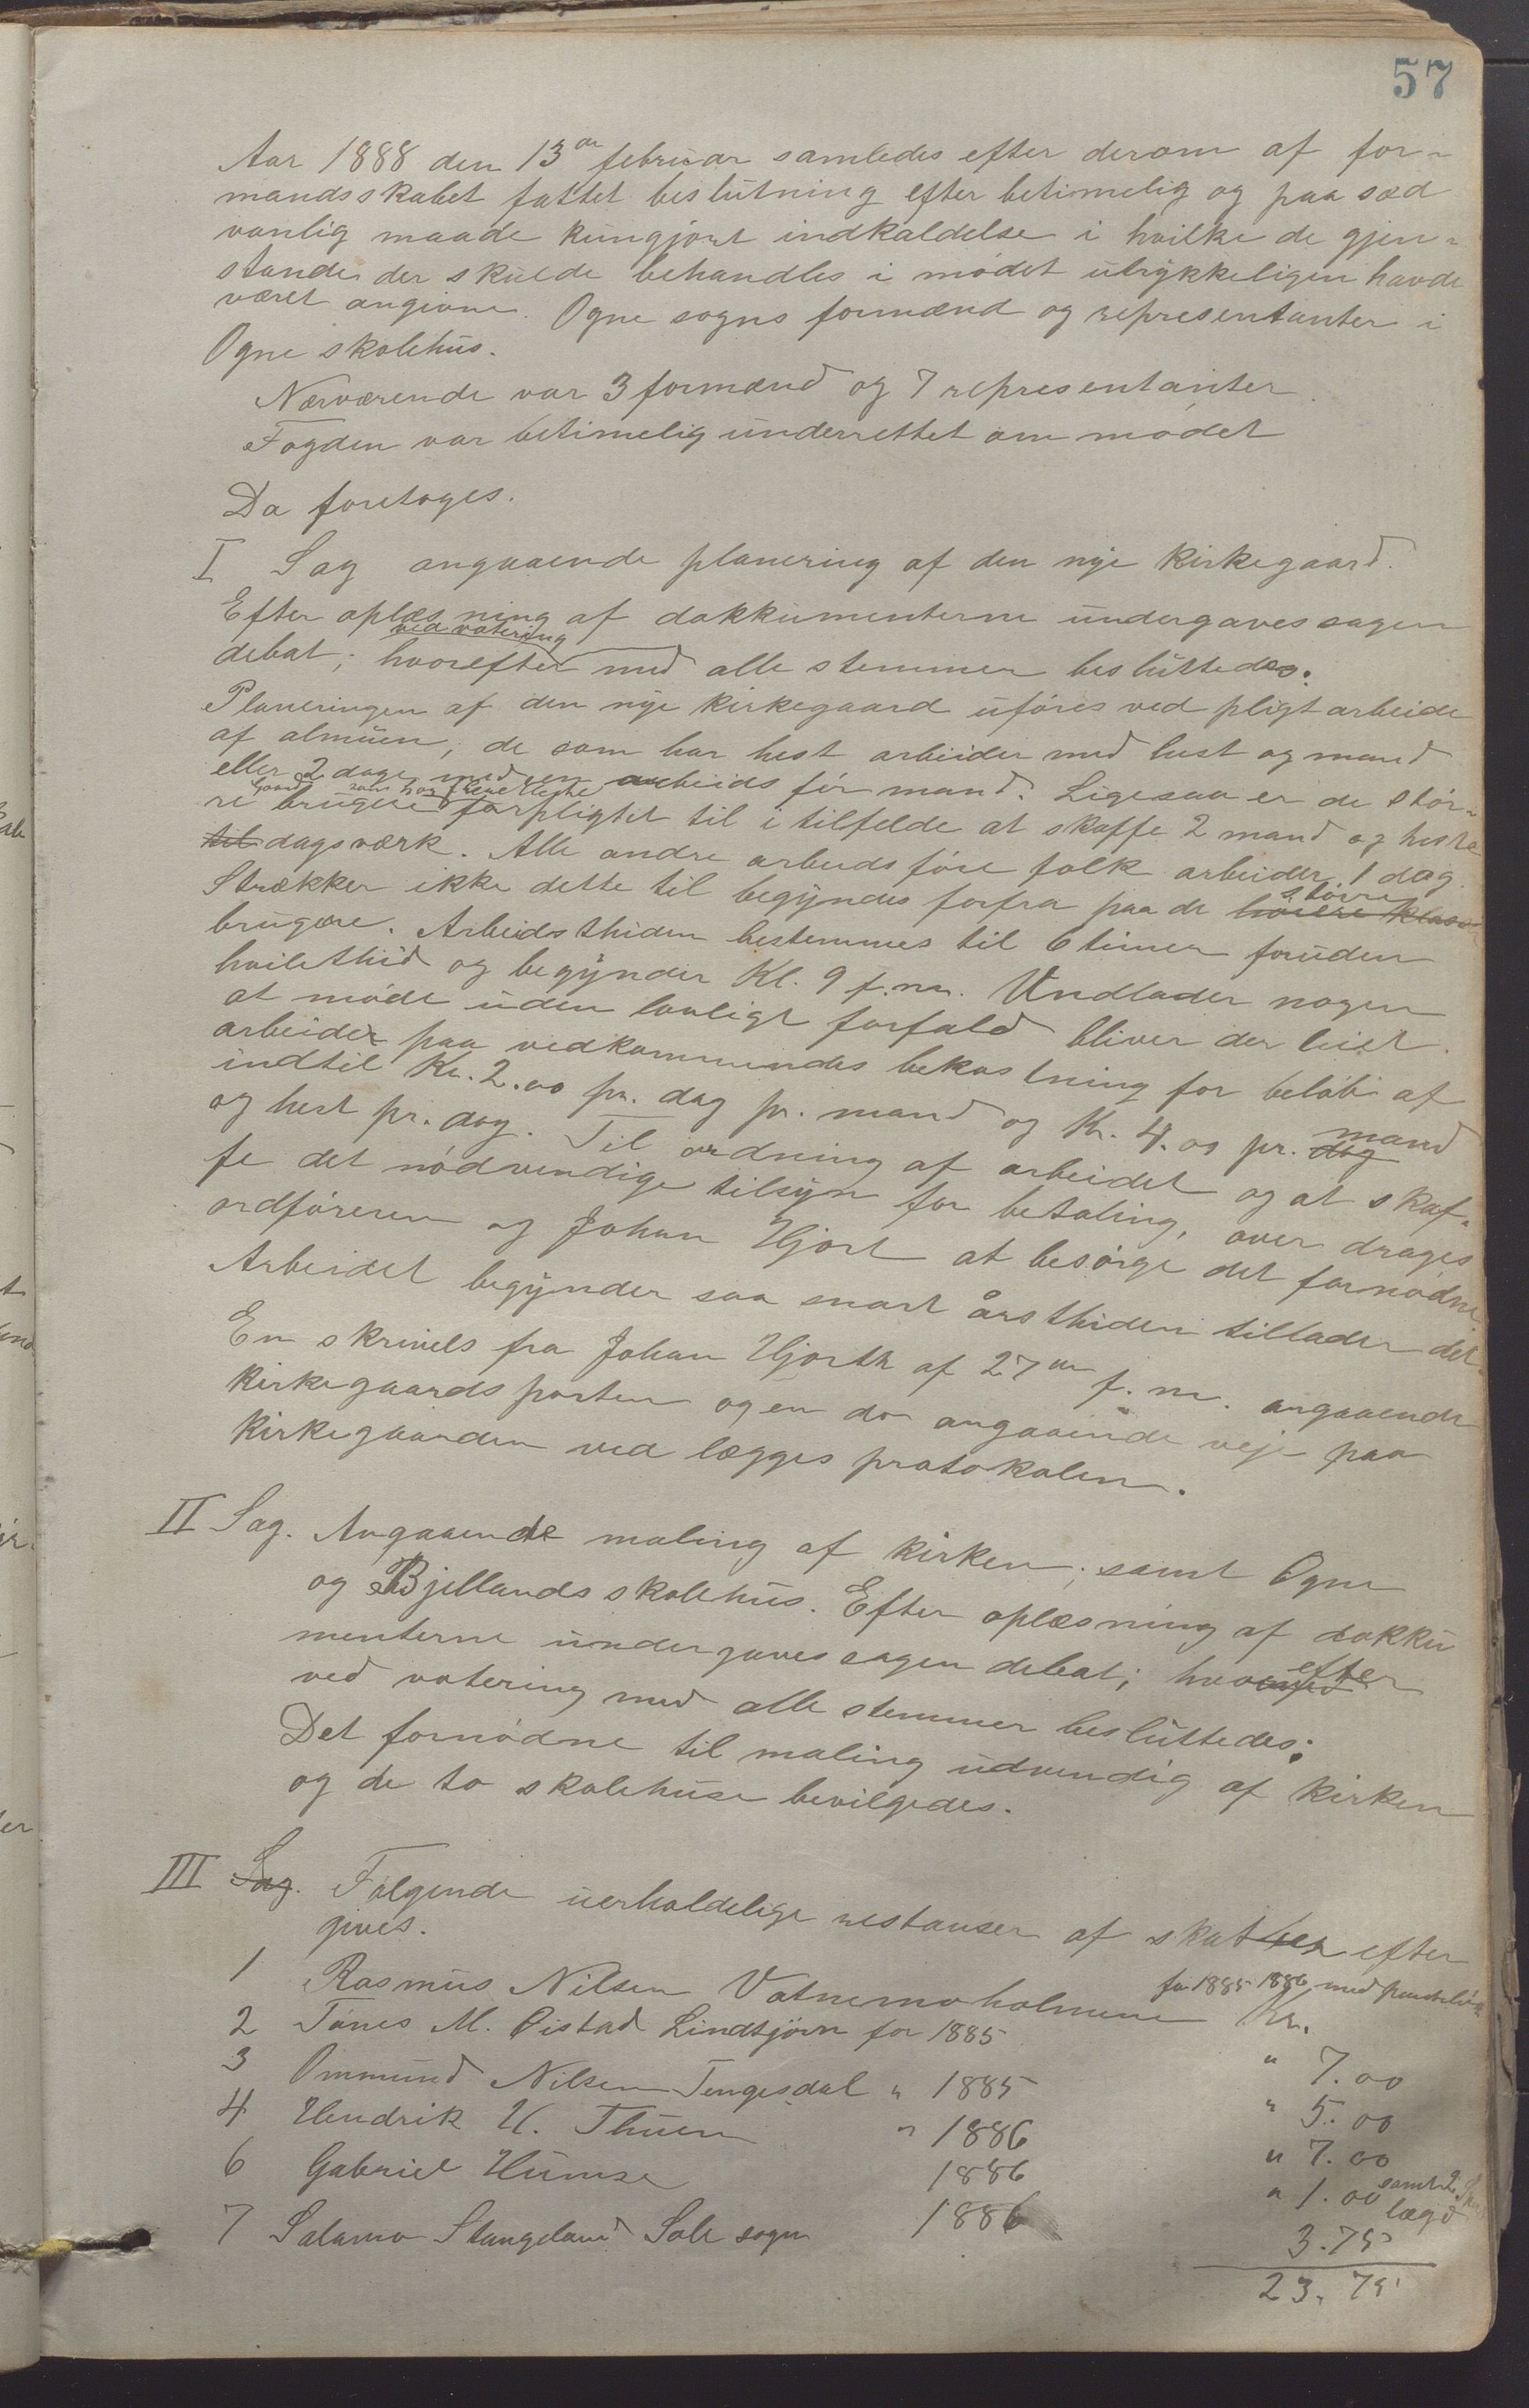 57
Aar 1888 den 13de februar samledes efter derom af for-
mandsskabet fattet beslutning efter betimelig og paa sæd
vanlig maade kungjort indkaldelse i hvilke de gjen-
stande der skulde behandles i mødet utrykkeligen havde
været angivne. Ogne sogns formænd og representanter i
Ogne skolehus.
Nærværende var 3 formænd og 7 representanter.
Fogden var betimelig underrettet om mødet
Da foretoges.
I Sag angaaende planering af den nye kirkegaard.
Efter oplæsning af dokkumenterne undergaves sagen
ved votering
debat; hvorefter med alle stemmer besluttedes.
Planeringen af den nye kirkegaard uføres ved pligtarbeide
af almuen, de som har hest arbeider med hest og mand
eller 2 dage med en arbeids før mand. Ligesaa er de stør-
Gaard som har flere heste
re brugere forpligtet til i tilfelde at skaffe 2 mand og heste
til dagsværk. Alle andre arbeidsføre folk arbeider 1 dag.
Strækker ikke dette til begyndes forfra paa de høiere klasse
større
brugere. Arbeidsthiden bestemmes til 6 timer foruden
hvilethid og begynder Kl. 9 f.m. Undlader nogen
at møde uden lovligt forfald bliver der leiet
arbeider paa vedkommendes bekostning for beløb af
indtil Kr. 2.00 pr. dag pr. mand og Kr. 4.00 pr. dag
mand
og hest pr. dag. Til ordning af arbeidet og at skaf-
fe det nødvendige tilsyn for betaling, over drages
ordføreren og Johan Hjort at besørge det fornødne
Arbeidet begynder saa snart årsthiden tillader det.
En skrivels fra Johan Hjorth af 27de f. m. angaaende
kirkegaardsporten og en do angaaende veje paa
kirkegaarden ved lægges protokolen.
II Sag. Angaaende maling af kirken; samt Ogne
og Bjellands skolehus. Efter oplæsning af dokku
menterne undergaves sagen debat; hvor
efter
ved votering med alle stemmer besluttedes:
Det fornødne til maling udvendig af kirken
og de to skolehuse bevilgedes.
III Sag. Følgende uerholdelige restanser af skatter efter
gives.
1 Rasmus Nilsen Vatnemoholmene for 1885 1886 med Kr. 7.00
2 Tønes M. Øistad Lindtjørn for 1885 " 5.00
3 Ommund Nilsen Tengesdal " 1885 " 7.00
4 Hendrik H. Thuen " 1886 " 1.00 samt 2
lægd
6 Gabriel Humse 1886 3.75
7 Salamo Stangeland Sole sogn 1886
23.75